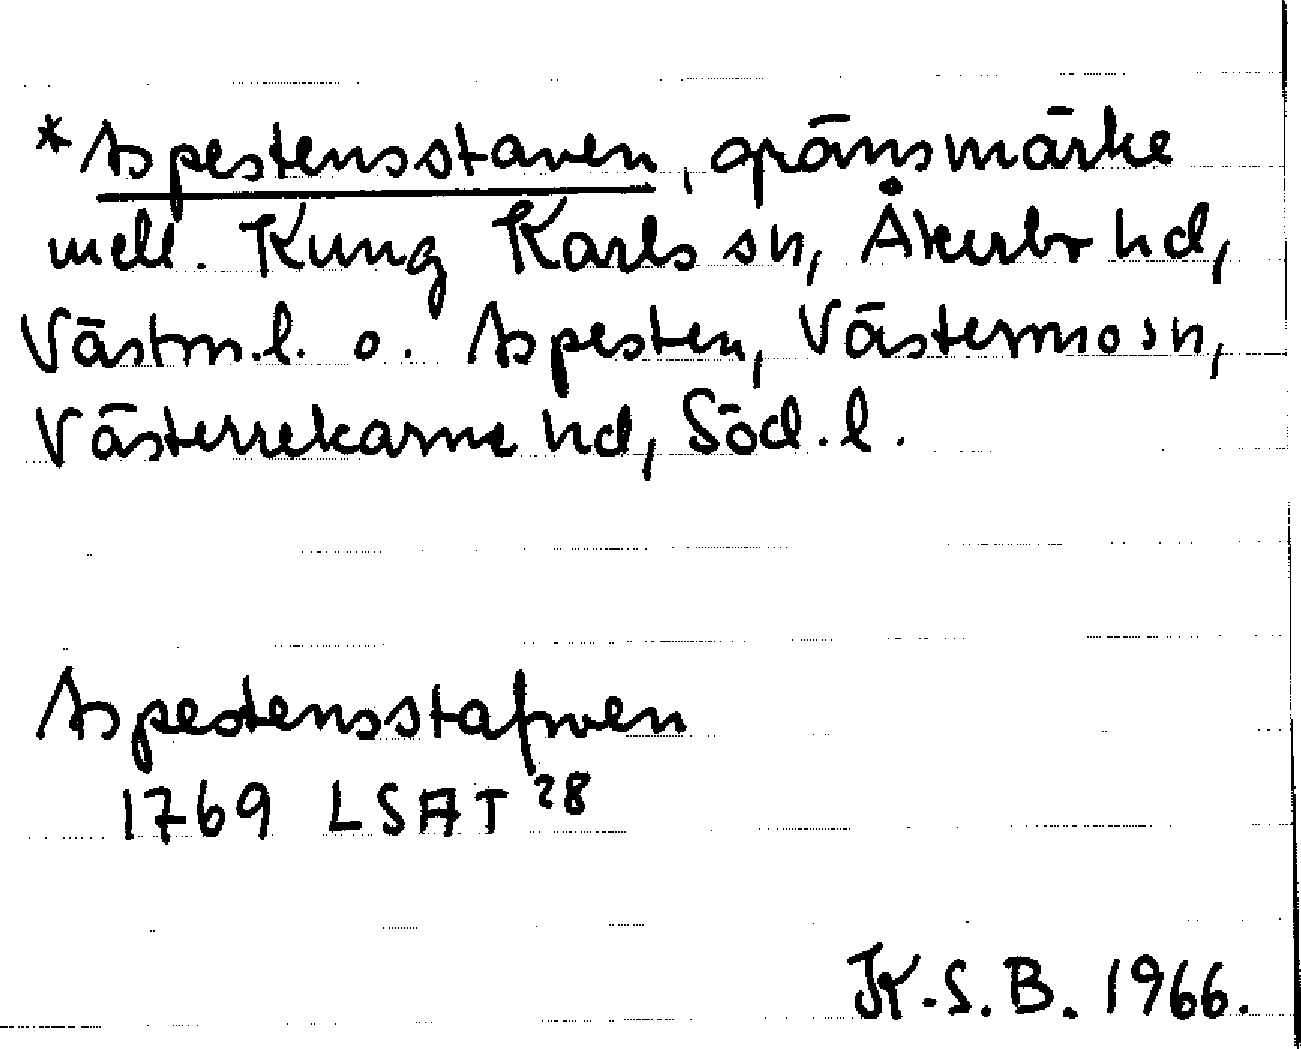 *Aspestensstaven, gränsmärke
mell. Kung Karls sn, Åkerbo hd,
Västm.l. o. Aspesten, Västermo sn,
Västerrekarne hd, Söd. l.
Aspestensstafwen
1769 LSA T 28
K.S.B. 1966.